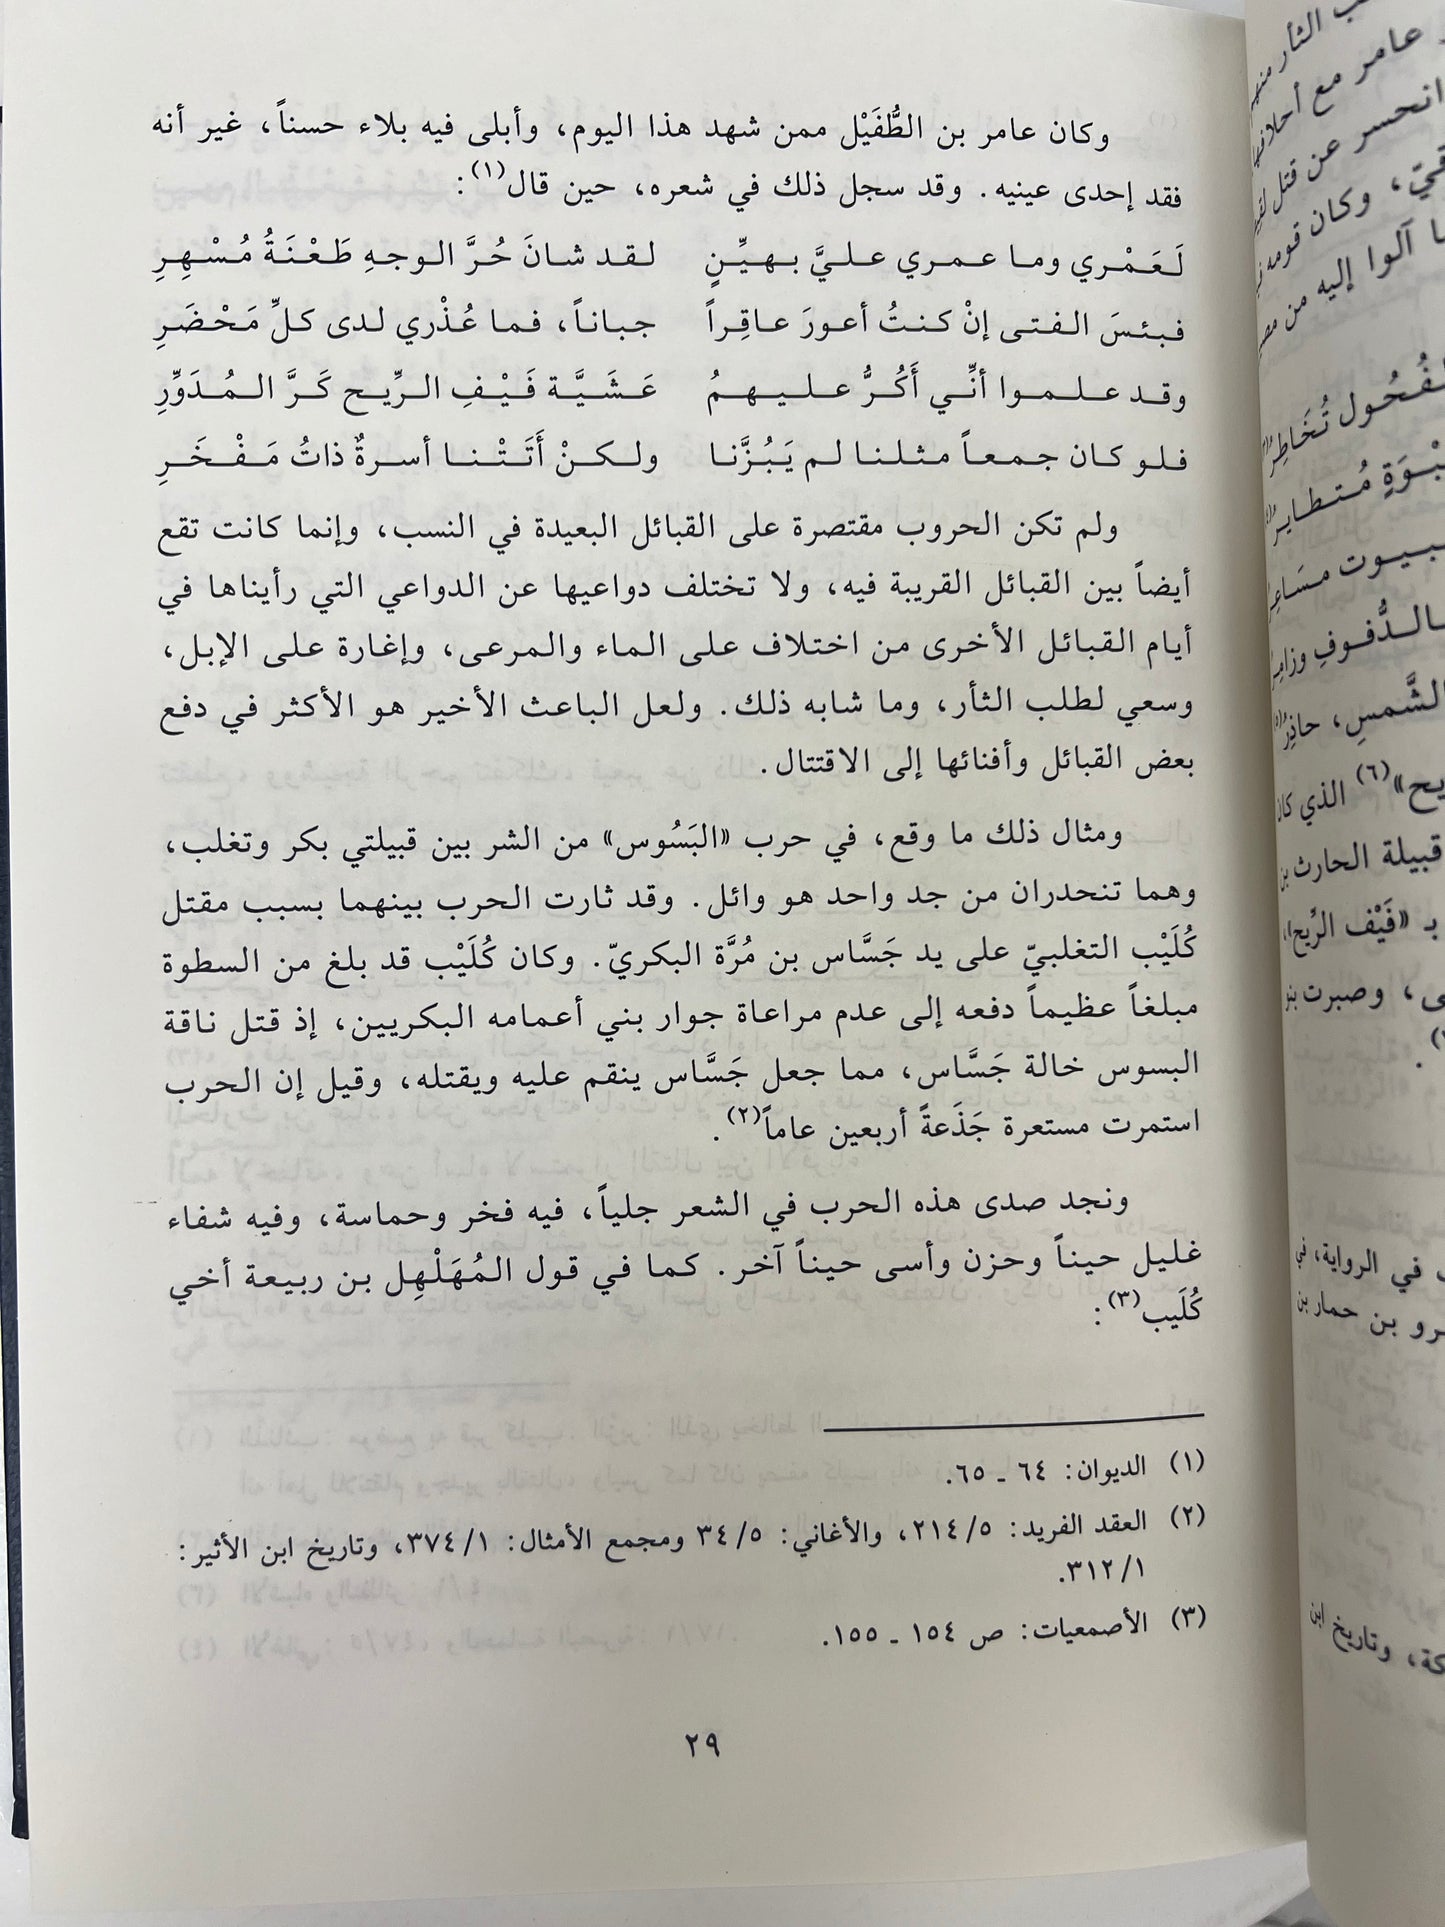 وكان عامر بن الطُّفَيْل ممن شهد هذا اليوم، وأبلى فيه بلاء حسناً، غير أنه
فقد إحدى عينيه. وقد سجل ذلك في شعره، حين قال(١):
لَعَمْري وما عمري عليَّ بهيِّنٍ لقد شانَ حُرَّ الوجهِ طَعْنَةُ مُسْهِرِ
فبئسَ الفتى إنْ كنتُ أعورَ عاقِراً جباناً، فما عُذْري لدى كلِّ مَحْضَرِ
وقد علموا أنِّي أَكُرُّ عليهمُ عَشَيَّة فَيْفِ الرِّيح كَرَّ المُدَوِّرِ
فلو كان جمعاً مثلنا لم يَبُزَّنا ولكنْ أَتَتْنا أسرةٌ ذاتُ مَفْخَرِ
ولم تكن الحروب مقتصرة على القبائل البعيدة في النسب، وإنما كانت تقع
أيضاً بين القبائل القريبة فيه، ولا تختلف دواعيها عن الدواعي التي رأيناها في
أيام القبائل الأخرى من اختلاف على الماء والمرعى، وإغارة على الإبل،
وسعي لطلب الثأر، وما شابه ذلك. ولعل الباعث الأخير هو الأكثر في دفع
بعض القبائل وأفنائها إلى الاقتتال.
ومثال ذلك ما وقع، في حرب «البَسُوس» من الشر بين قبيلتي بكر وتغلب،
وهما تنحدران من جد واحد هو وائل. وقد ثارت الحرب بينهما بسبب مقتل
كُلَيْب التغلبيّ على يد جَسَّاس بن مُرَّة البكريّ. وكان كُلَيْب قد بلغ من السطوة
مبلغاً عظيماً دفعه إلى عدم مراعاة جوار بني أعمامه البكريين، إذ قتل ناقة
البسوس خالة جَسَّاس، مما جعل جَسَّاس ينقم عليه ويقتله، وقيل إن الحرب
استمرت مستعرة جَذَعةً أربعين عاماً(٢).
ونجد صدى هذه الحرب في الشعر جلياً، فيه فخر وحماسة، وفيه شفاء
غليل حيناً وحزن وأسى حيناً آخر. كما في قول المُهَلْهِل بن ربيعة أخي
كُلَيب(٣):
(١) الديوان: ٦٤ ـ ٦٥.
(٢) العقد الفريد: ٢١٤/٥، والأغاني: ٣٤/٥ ومجمع الأمثال: ٣٧٤/١، وتاريخ ابن الأثير:
٣١٢/١.
(٣) الأصمعيات: ص ١٥٤ ـ ١٥٥.
٢٩
الثأر منهم
عامر مع أحلافها
انحسر عن قتل
وكان قومه
آلوا إليه من
تُخَاطِرُ
مُتطايرُ
بالدُّفوفِ
الشَّمسِ، حاذِرُ
(٦) الذي كان
قبيلة الحارث بن
بـ «فَيْف الرِّيح»،
وصبرت بنو
في الرواية، في
بن حمار بن
وتاريخ ابن